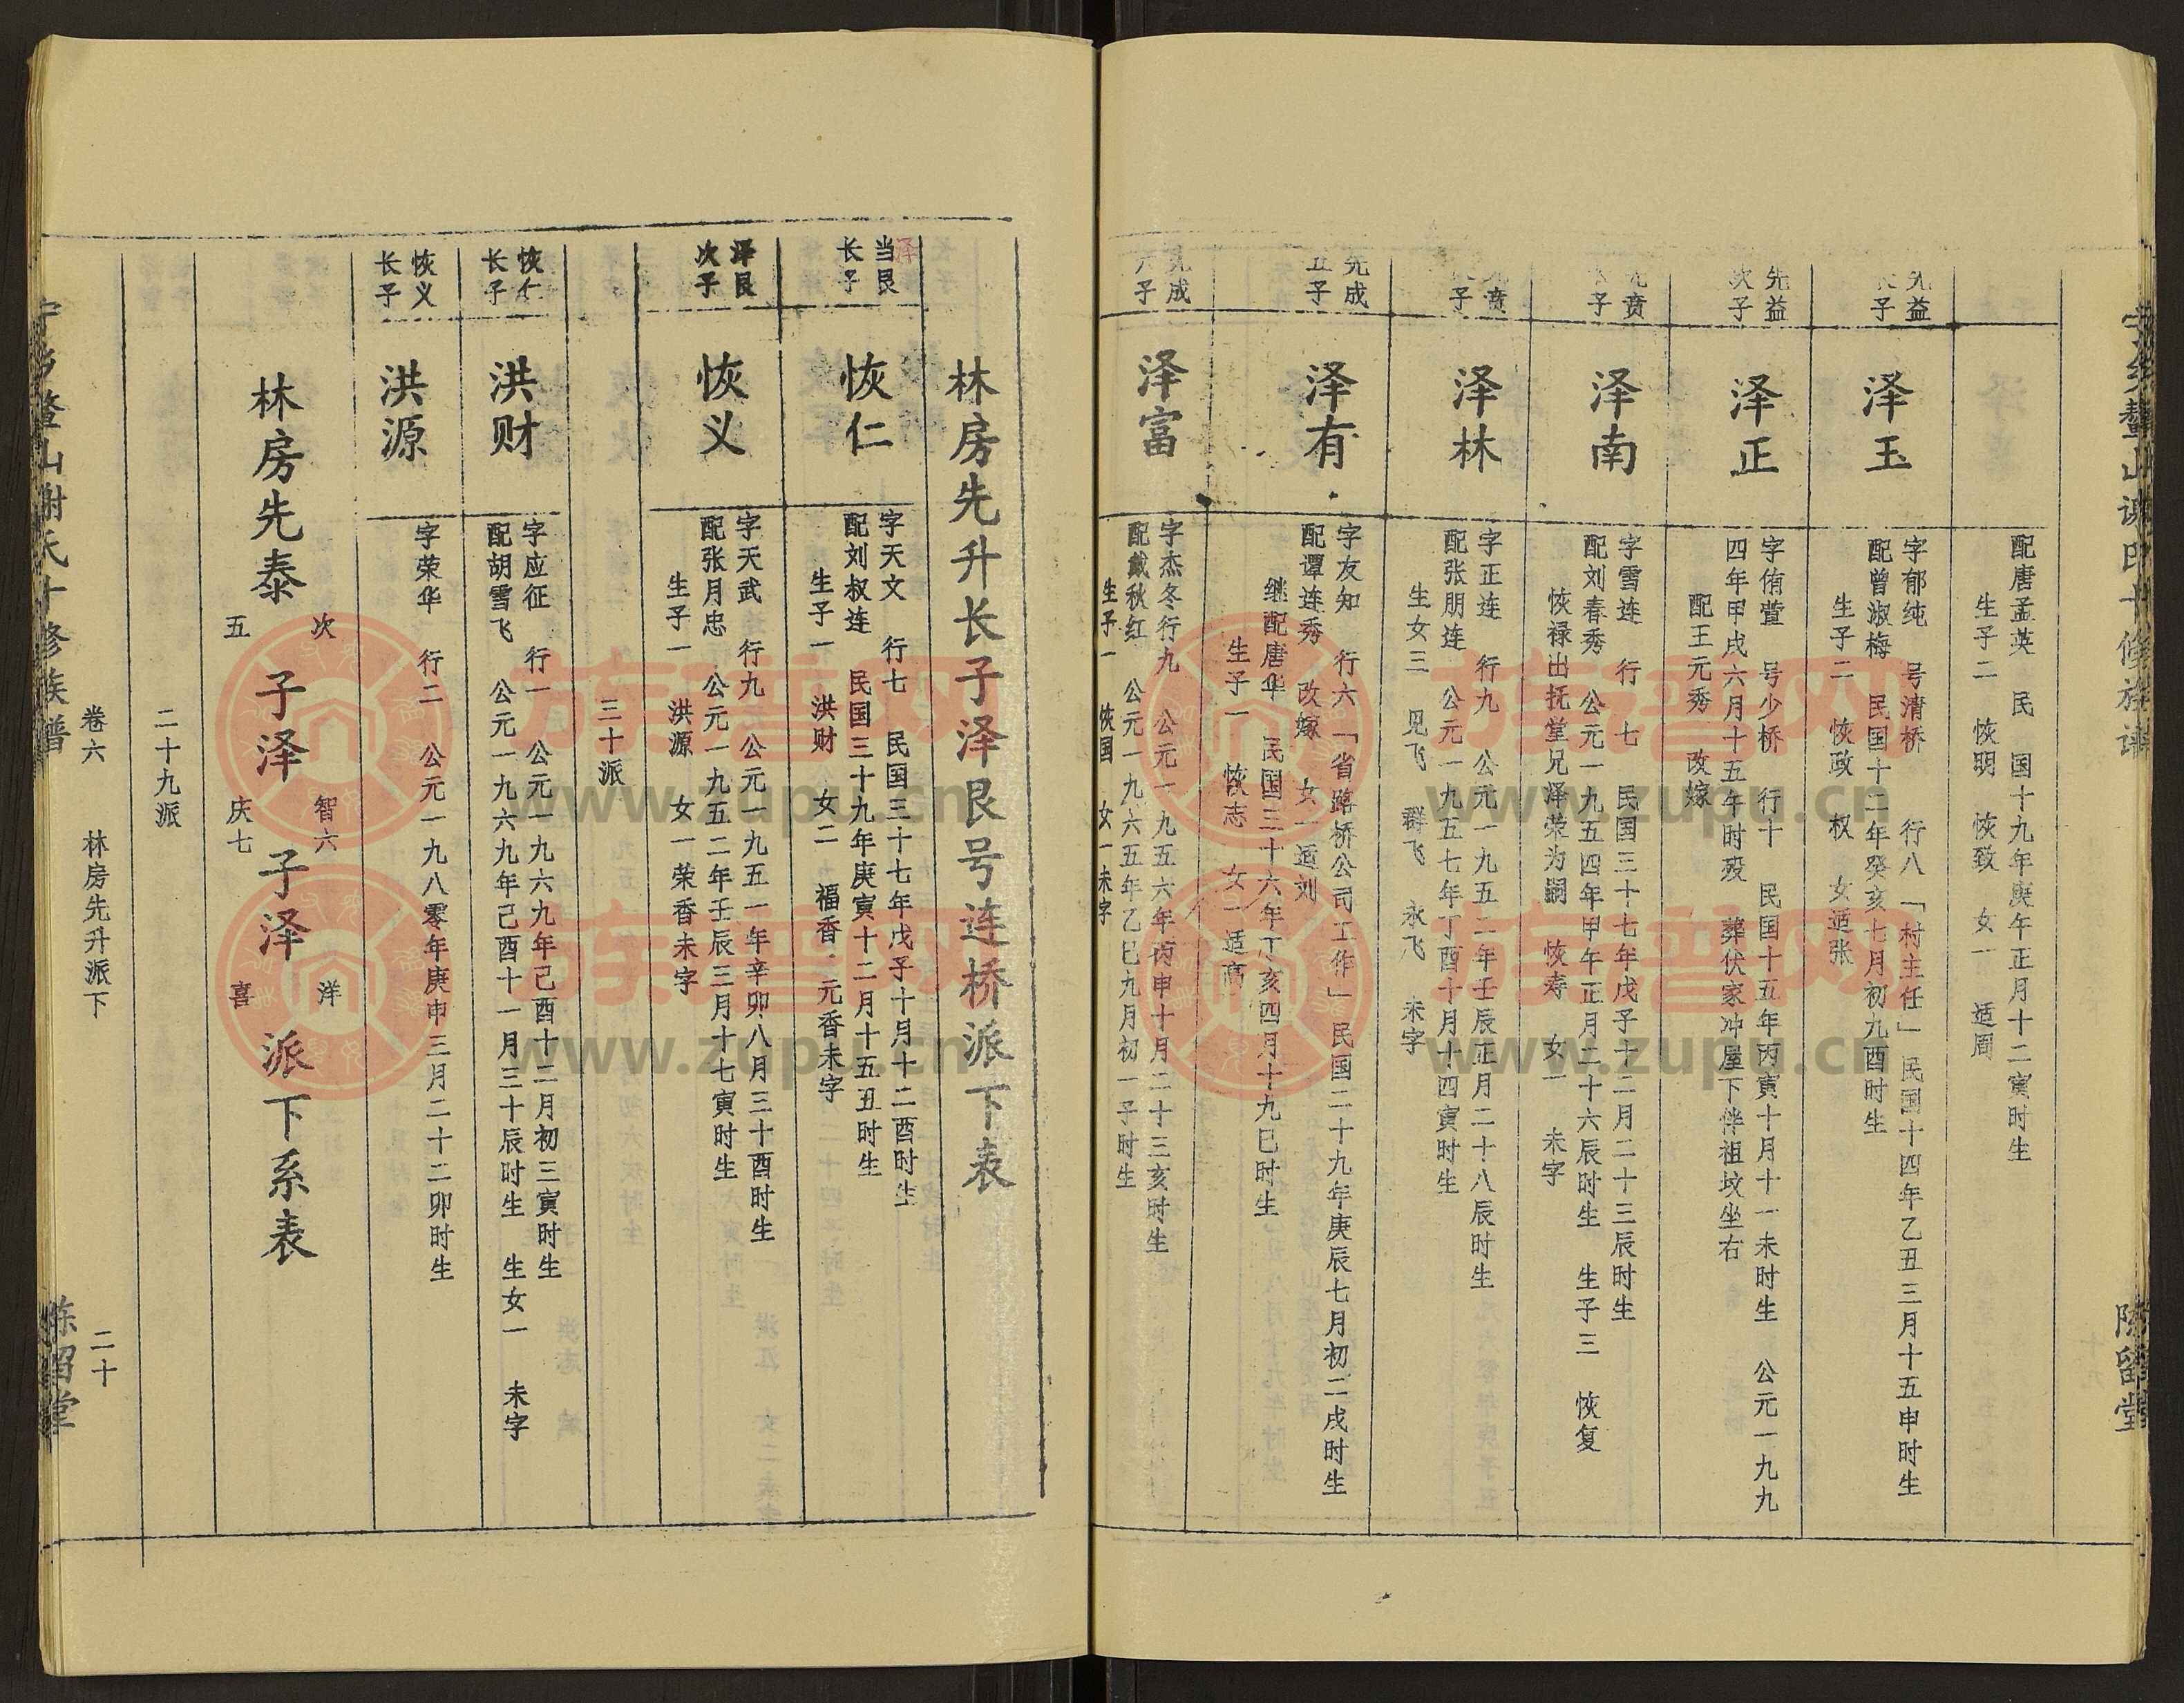 配唐孟英　民　国十九年庚午正月十二寅时生
生子二　恢明　恢致　女一　适周
先益
长子
泽玉
字郁纯　号清桥　行八「村主任」民国十四年乙丑三月十五申时生
配曾淑梅　民国十二年癸亥七月初九酉时生
生子二　恢政　权　女适张
先益
次子
泽正
字侑萱　号少桥　行十　民国十五年丙寅十月十一未时生　公元一九九
四年甲戌六月十五午时殁　葬伏家冲屋下伴祖坟坐右
配王元秀　改嫁
贲
子
泽南
字雪连　行　七　民国三十七年戊子十二月二十三辰时生
配刘春秀　公元一九五四年甲午正月二十六辰时生　生子三　恢复
恢禄出抚堂兄泽荣为嗣　恢寿　女一　未字
贲
子
泽林
字正连　行九　公元一九五二年壬辰正月二十八辰时生
配张朋连　公元一九五七年丁酉十月十四寅时生
生女三　见飞　群飞　永飞　未字
先成
五子
泽有
字友知　行六「省路桥公司工作」民国二十九年庚辰七月初二戌时生
配谭连秀　改嫁　女一适刘
继配唐华　民国三十六年丁亥四月十九巳时生
生子一　恢志　女一适高
先成
六子
泽富
字杰冬行九　公元一九五六年丙申十月二十三亥时生
配戴秋红　公元一九六五年乙巳九月初一子时生
生子一　恢国　女一未字
陈留堂
林房先升长子泽艮号连桥派下表
泽
当艮
长子
恢仁
字天文　行七　民国三十七年戊子十月十二酉时生
配刘叔连　民国三十九年庚寅十二月十五丑时生
生子一　洪财　女二　福香　元香未字
泽艮
次子
恢义
字天武　行九　公元一九五一年辛卯八月三十酉时生
配张月忠　公元一九五二年壬辰三月十七寅时生
生子一　洪源　女一荣香未字
三十派
恢仁
长子
洪财
字应征　行一　公元一九六九年己酉十二月初三寅时生
配胡雪飞　公元一九六九年己酉十一月三十辰时生　生女一　未字
恢义
长子
洪源
字荣华　行二　公元一九八零年庚申三月二十二卯时生
林房先泰　次五　子泽　智六庆七　子泽　洋喜　派下系表
二十九派
卷六　林房先升派下　二十
宁乡鳌山谢氏十修族谱
陈留堂
族谱网
www.zupu.cn
族谱网
www.zupu.cn
族谱网
www.zupu.cn
族谱网
www.zupu.cn